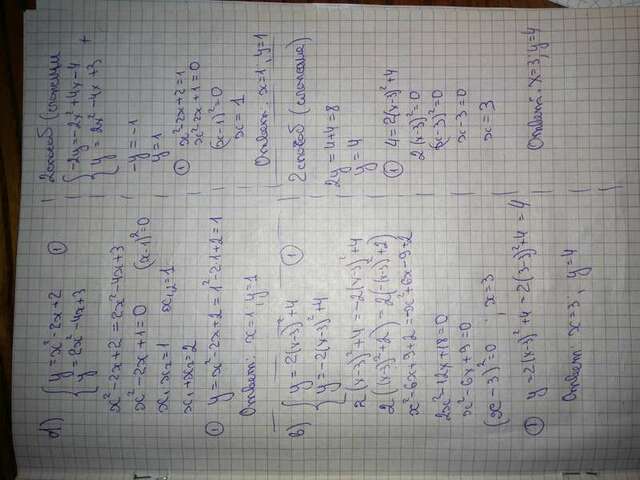 d) { y = x² - 2x + 2 ①
y = 2x² - 4x + 3
x² - 2x + 2 = 2x² - 4x + 3
x² - 2x + 1 = 0 (x-1)² = 0
x₁ x₂ = 1 x₁,₂ = 1
x₁ + x₂ = 2
① y = x² - 2x + 2 = 1² - 2·1 + 2 = 1
Ответ: x = 1, y = 1
2 способ (сложени
{ -2y = -2x² + 4x - 4
y = 2x² - 4x + 3 +
-y = -1
y = 1
① x² - 2x + 2 = 1
x² - 2x + 1 = 0
(x-1)² = 0
x = 1
Ответ: x = 1, y = 1
в) { y = 2(x-3)² + 4 ①
y = -2(x-3)² + 4
2(x-3)² + 4 = -2(x-3)² + 4
2((x-3)² + 2) = 2(-(x-3)² + 2)
x² - 6x + 9 + 2 = -x² + 6x - 9 + 2
2x² - 12x + 18 = 0
x² - 6x + 9 = 0
(x-3)² = 0 ; x = 3
① y = 2(x-3)² + 4 = 2(3-3)² + 4 = 4
Ответ: x = 3; y = 4
2 способ (сложение)
2y = 4+4 = 8
y = 4
① 4 = 2(x-3)² + 4
2(x-3)² = 0
(x-3)² = 0
x - 3 = 0
x = 3
Ответ: x = 3; y = 4